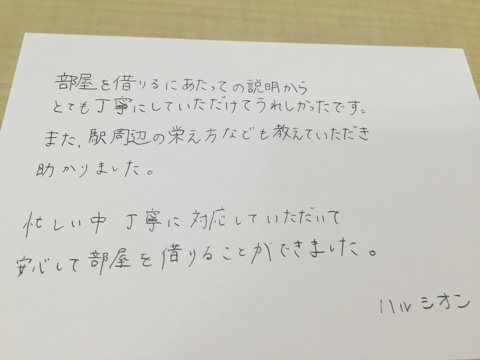 部屋を借りるにあたっての説明から
とても丁寧にしていただけてうれしかったです。
また、駅周辺の栄え方なども教えていただき
助かりました。
忙しい中 丁寧に対応していただいて
安心して部屋を借りることができました。
ハルシオン